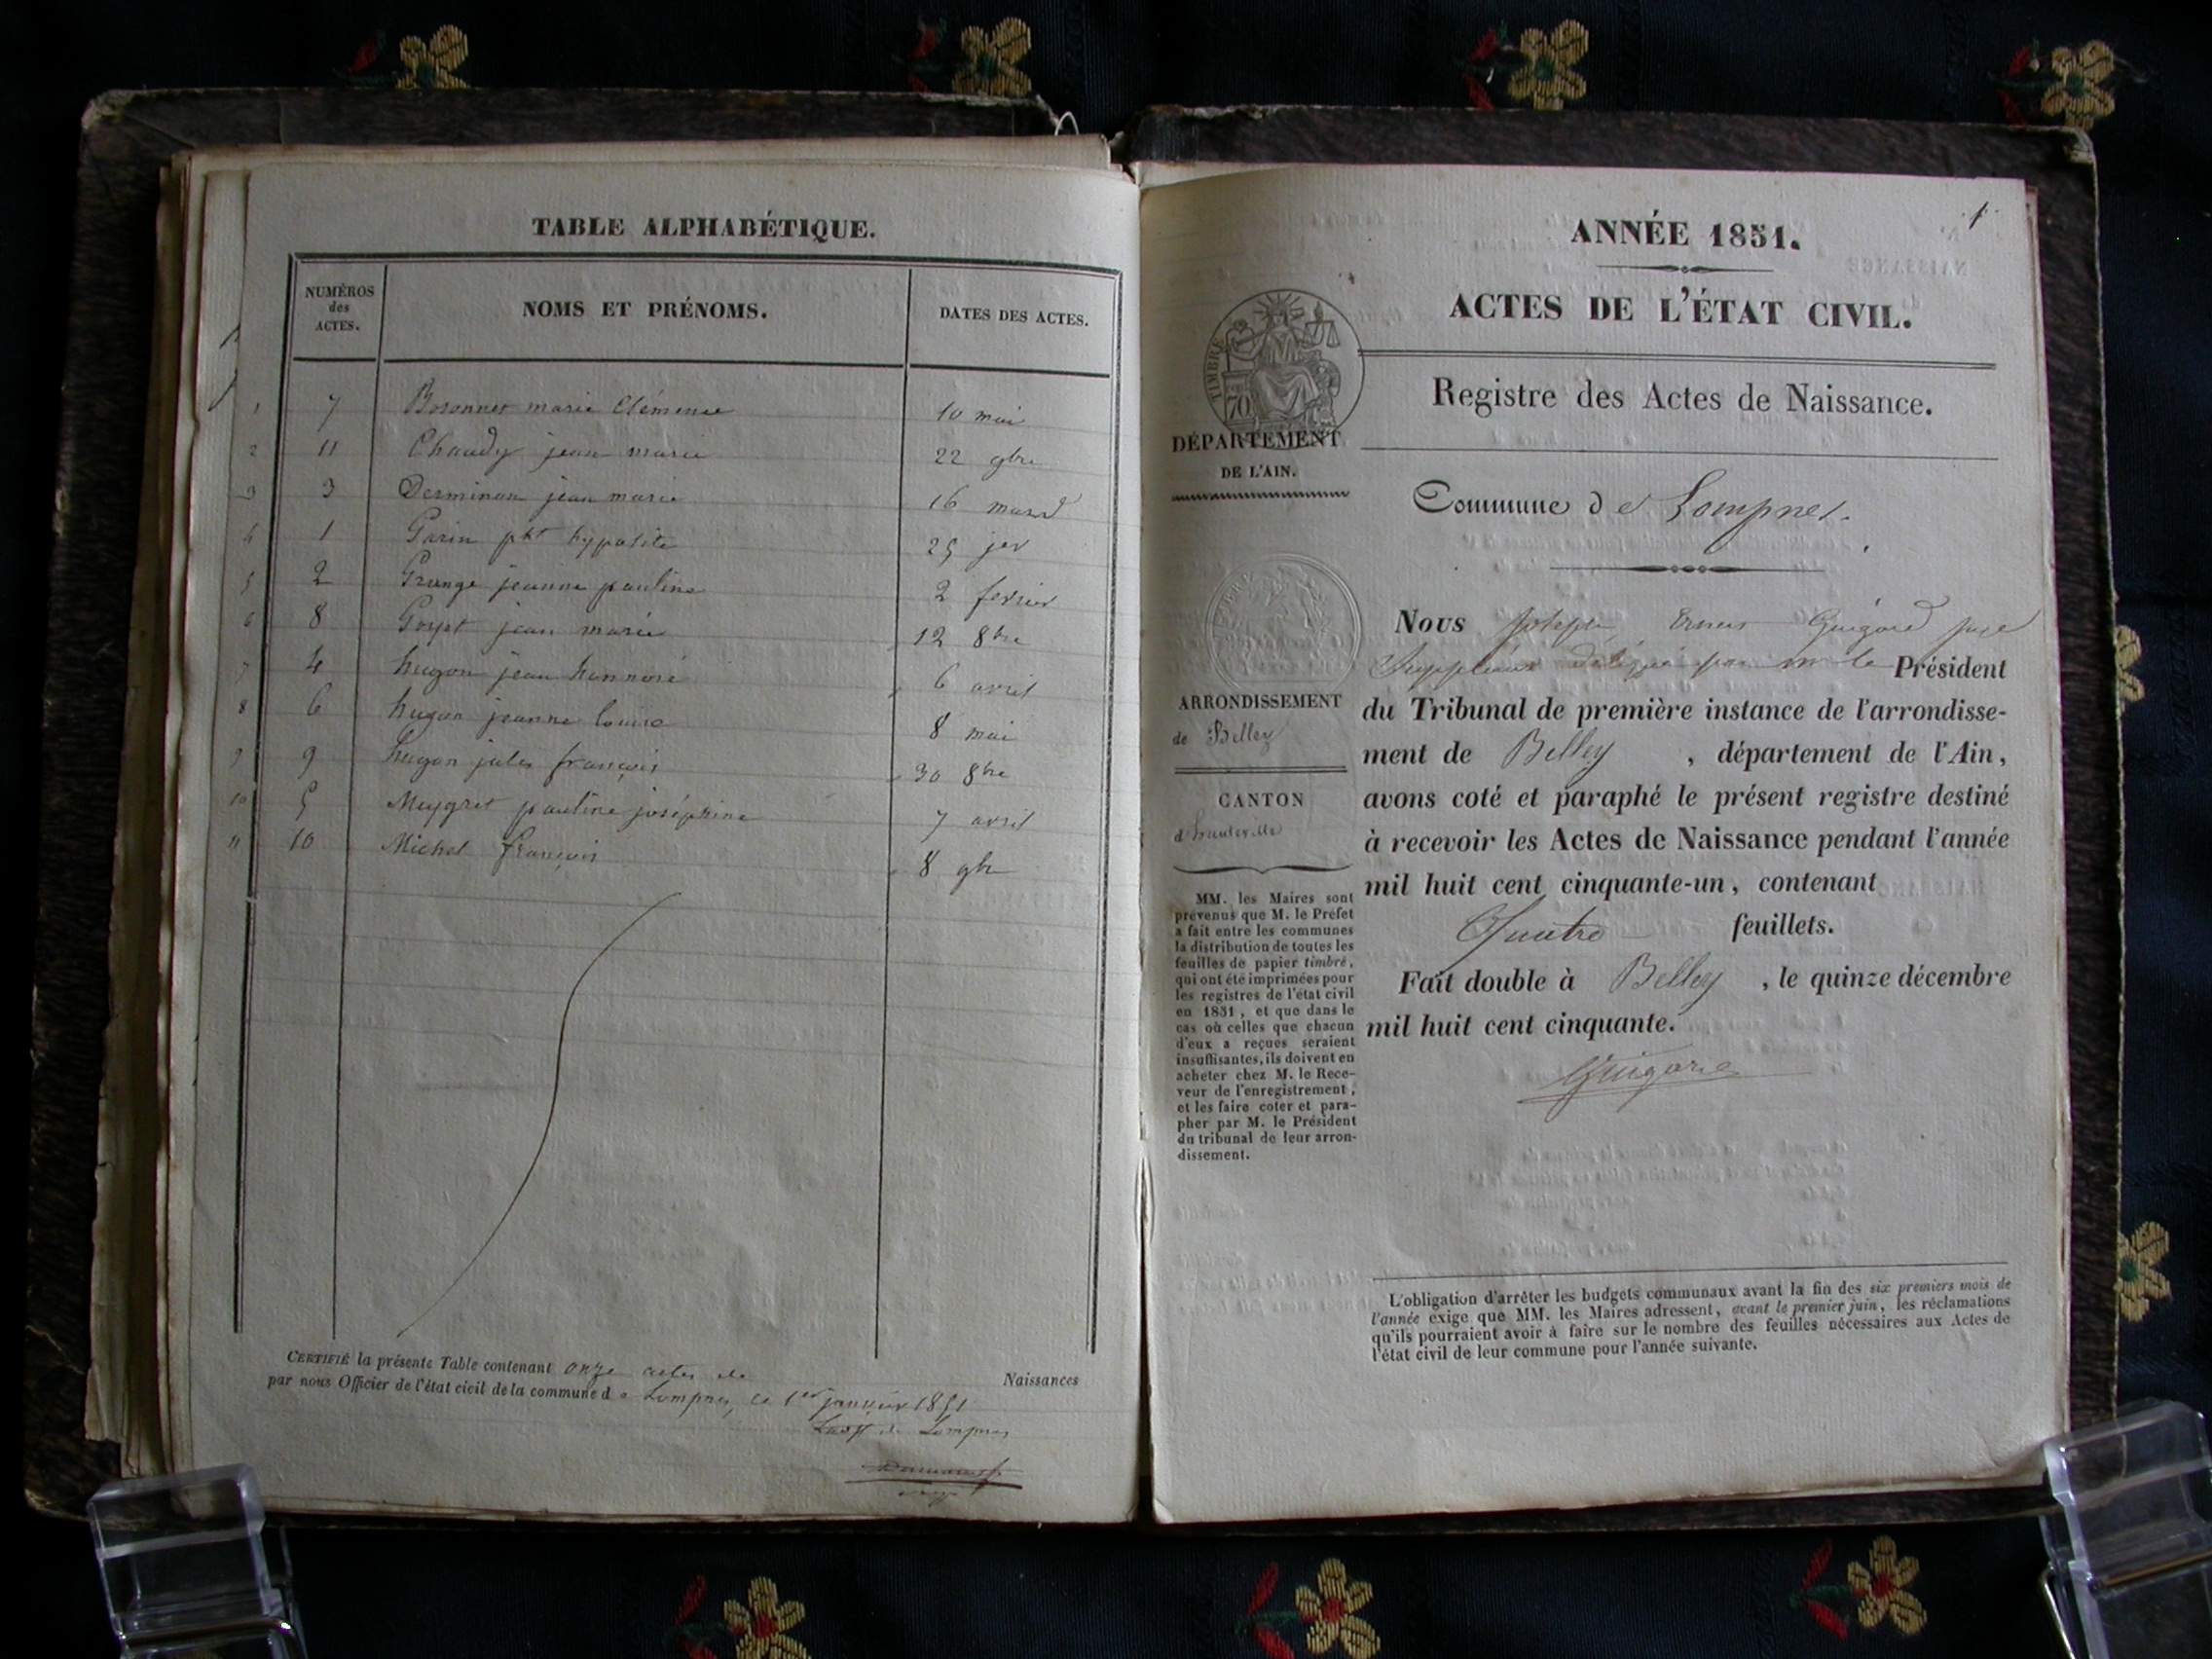 TABLE ALPHABÉTIQUE.
NUMÉROS des ACTES.
NOMS ET PRÉNOMS.
DATES DES ACTES.
1 7 marie Clémence 10 mai
2 11 Chaudy jean marie 22 9bre
3 3 jean marie 16 mars
4 1 Garin hyppolite 25 jer
5 2 Grange jeanne pauline 2 fevrier
6 8 Goyet jean marie 12 8bre
7 4 hugon jean honnoré 6 avril
8 6 hugon jeanne louise 8 mai
9 9 hugon jules françois 30 8bre
10 5 Meygret pauline joséphine 7 avril
11 10 Michel françois 8 9bre
CERTIFIÉ la présente Table contenant onze actes de Naissances
par nous Officier de l'état civil de la commune de Lompnes, ce 1er janvier 1851
de Lompnes
1
ANNÉE 1851.
ACTES DE L'ÉTAT CIVIL.
Registre des Actes de Naissance.
TIMBRE
70
DÉPARTEMENT
DE L'AIN.
Commune de Lompnes.
ARRONDISSEMENT
de Belley
CANTON
d'hauteville
MM. les Maires sont
prévenus que M. le Préfet
a fait entre les communes
la distribution de toutes les
feuilles de papier timbré,
qui ont été imprimées pour
les registres de l'état civil
en 1851, et que dans le
cas où celles que chacun
d'eux a reçues seraient
insuffisantes, ils doivent en
acheter chez M. le Rece-
veur de l'enregistrement,
et les faire coter et para-
pher par M. le Président
du tribunal de leur arron-
dissement.
Nous Joseph Guigard juge
Suppléant délégué par M. le Président
du Tribunal de première instance de l'arrondisse-
ment de Belley, département de l'Ain,
avons coté et paraphé le présent registre destiné
à recevoir les Actes de Naissance pendant l'année
mil huit cent cinquante-un, contenant
Quatre feuillets.
Fait double à Belley, le quinze décembre
mil huit cent cinquante.
Guigard
L'obligation d'arrêter les budgets communaux avant la fin des six premiers mois de
l'année exige que MM. les Maires adressent, avant le premier juin, les réclamations
qu'ils pourraient avoir à faire sur le nombre des feuilles nécessaires aux Actes de
l'état civil de leur commune pour l'année suivante.